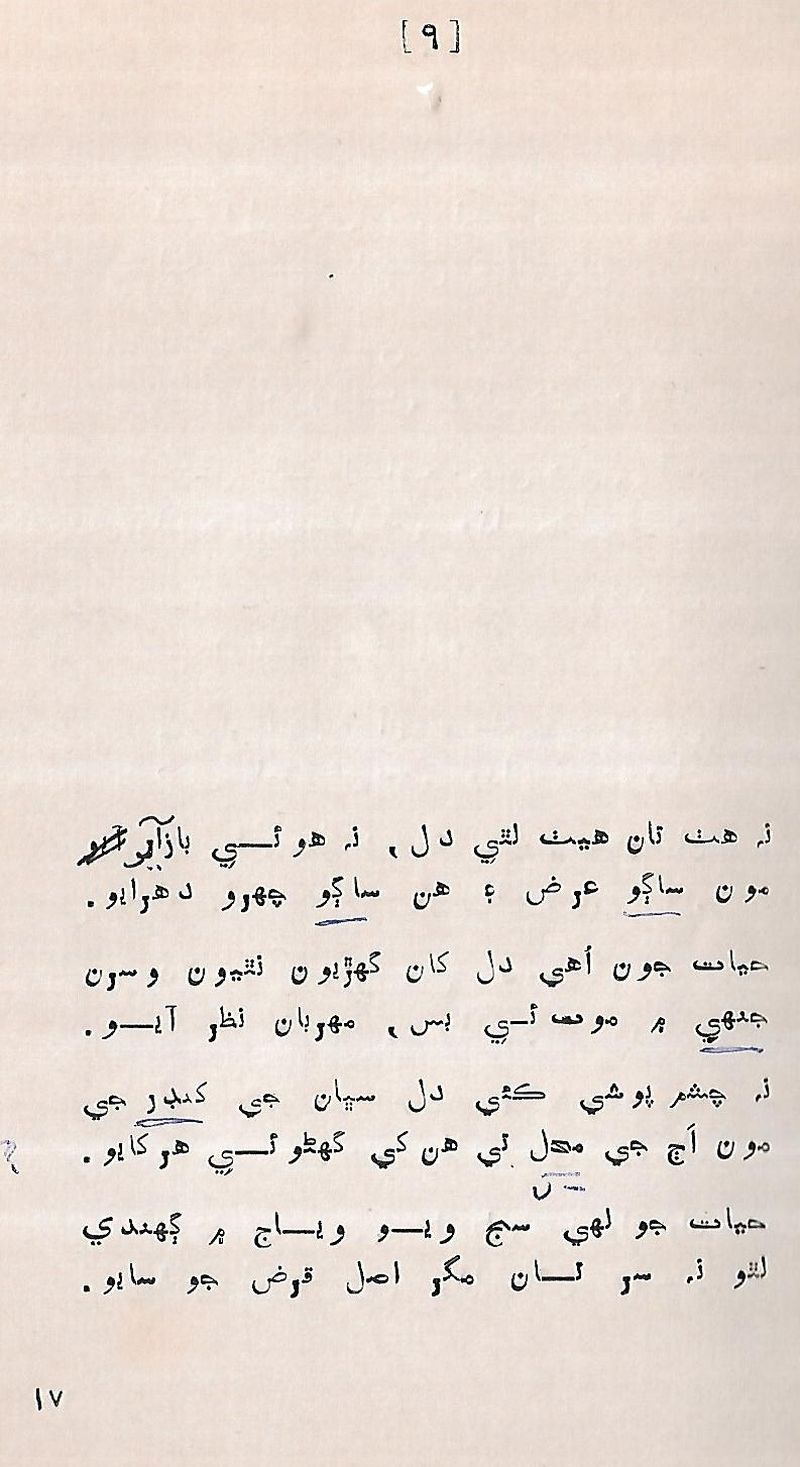 [۹]
نہ هٿ تان هيٺ لٿي دل، نہ هو ئــي بازآيو
مون ساڳو عرض ۽ هن ساڳو چهرو دهرايو.
حيات جون اُهي دل کان گهڙيون نٿيون وسرن
جنهي ۾ موت ئــي بس، مهربان نظر آيــو.
نہ چشم پوشي ڪئي دل سڀان جي ڪنڊر جي
مون اَڄ جي محل تي هن کي گهڻو ئــي هرکايو.
حيات جو لهي سج ويــو ويــاج ۾ ڳهندي
لٿو نہ سر تــان مگر اصل قرض جو سايو.
۱۷